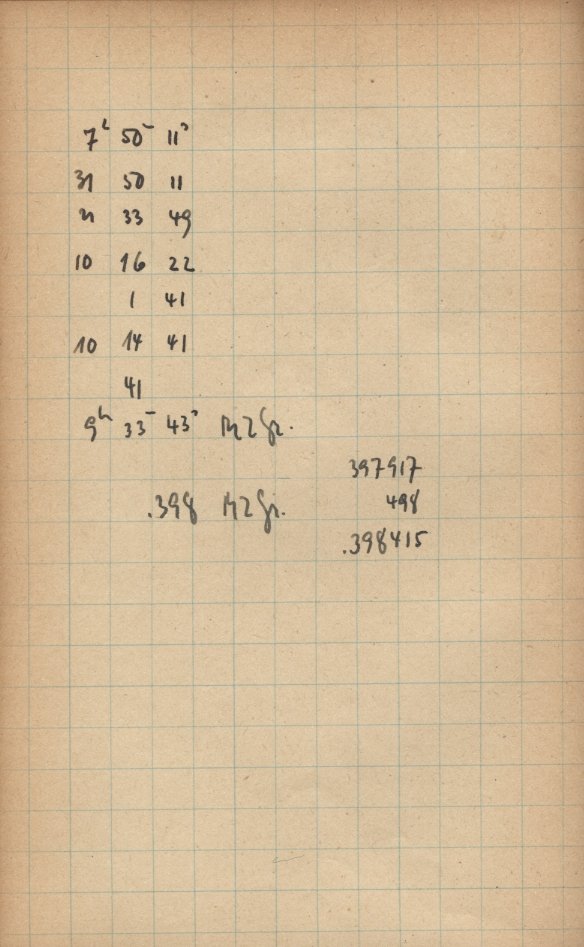 7ʰ 50ᵐ 11ˢ
31 50 11
21 33 49
10 16 22
1 41
10 14 41
41
9ʰ 33ᵐ 43ˢ MZGr.
397917
498
.398 MZGr.
.398415